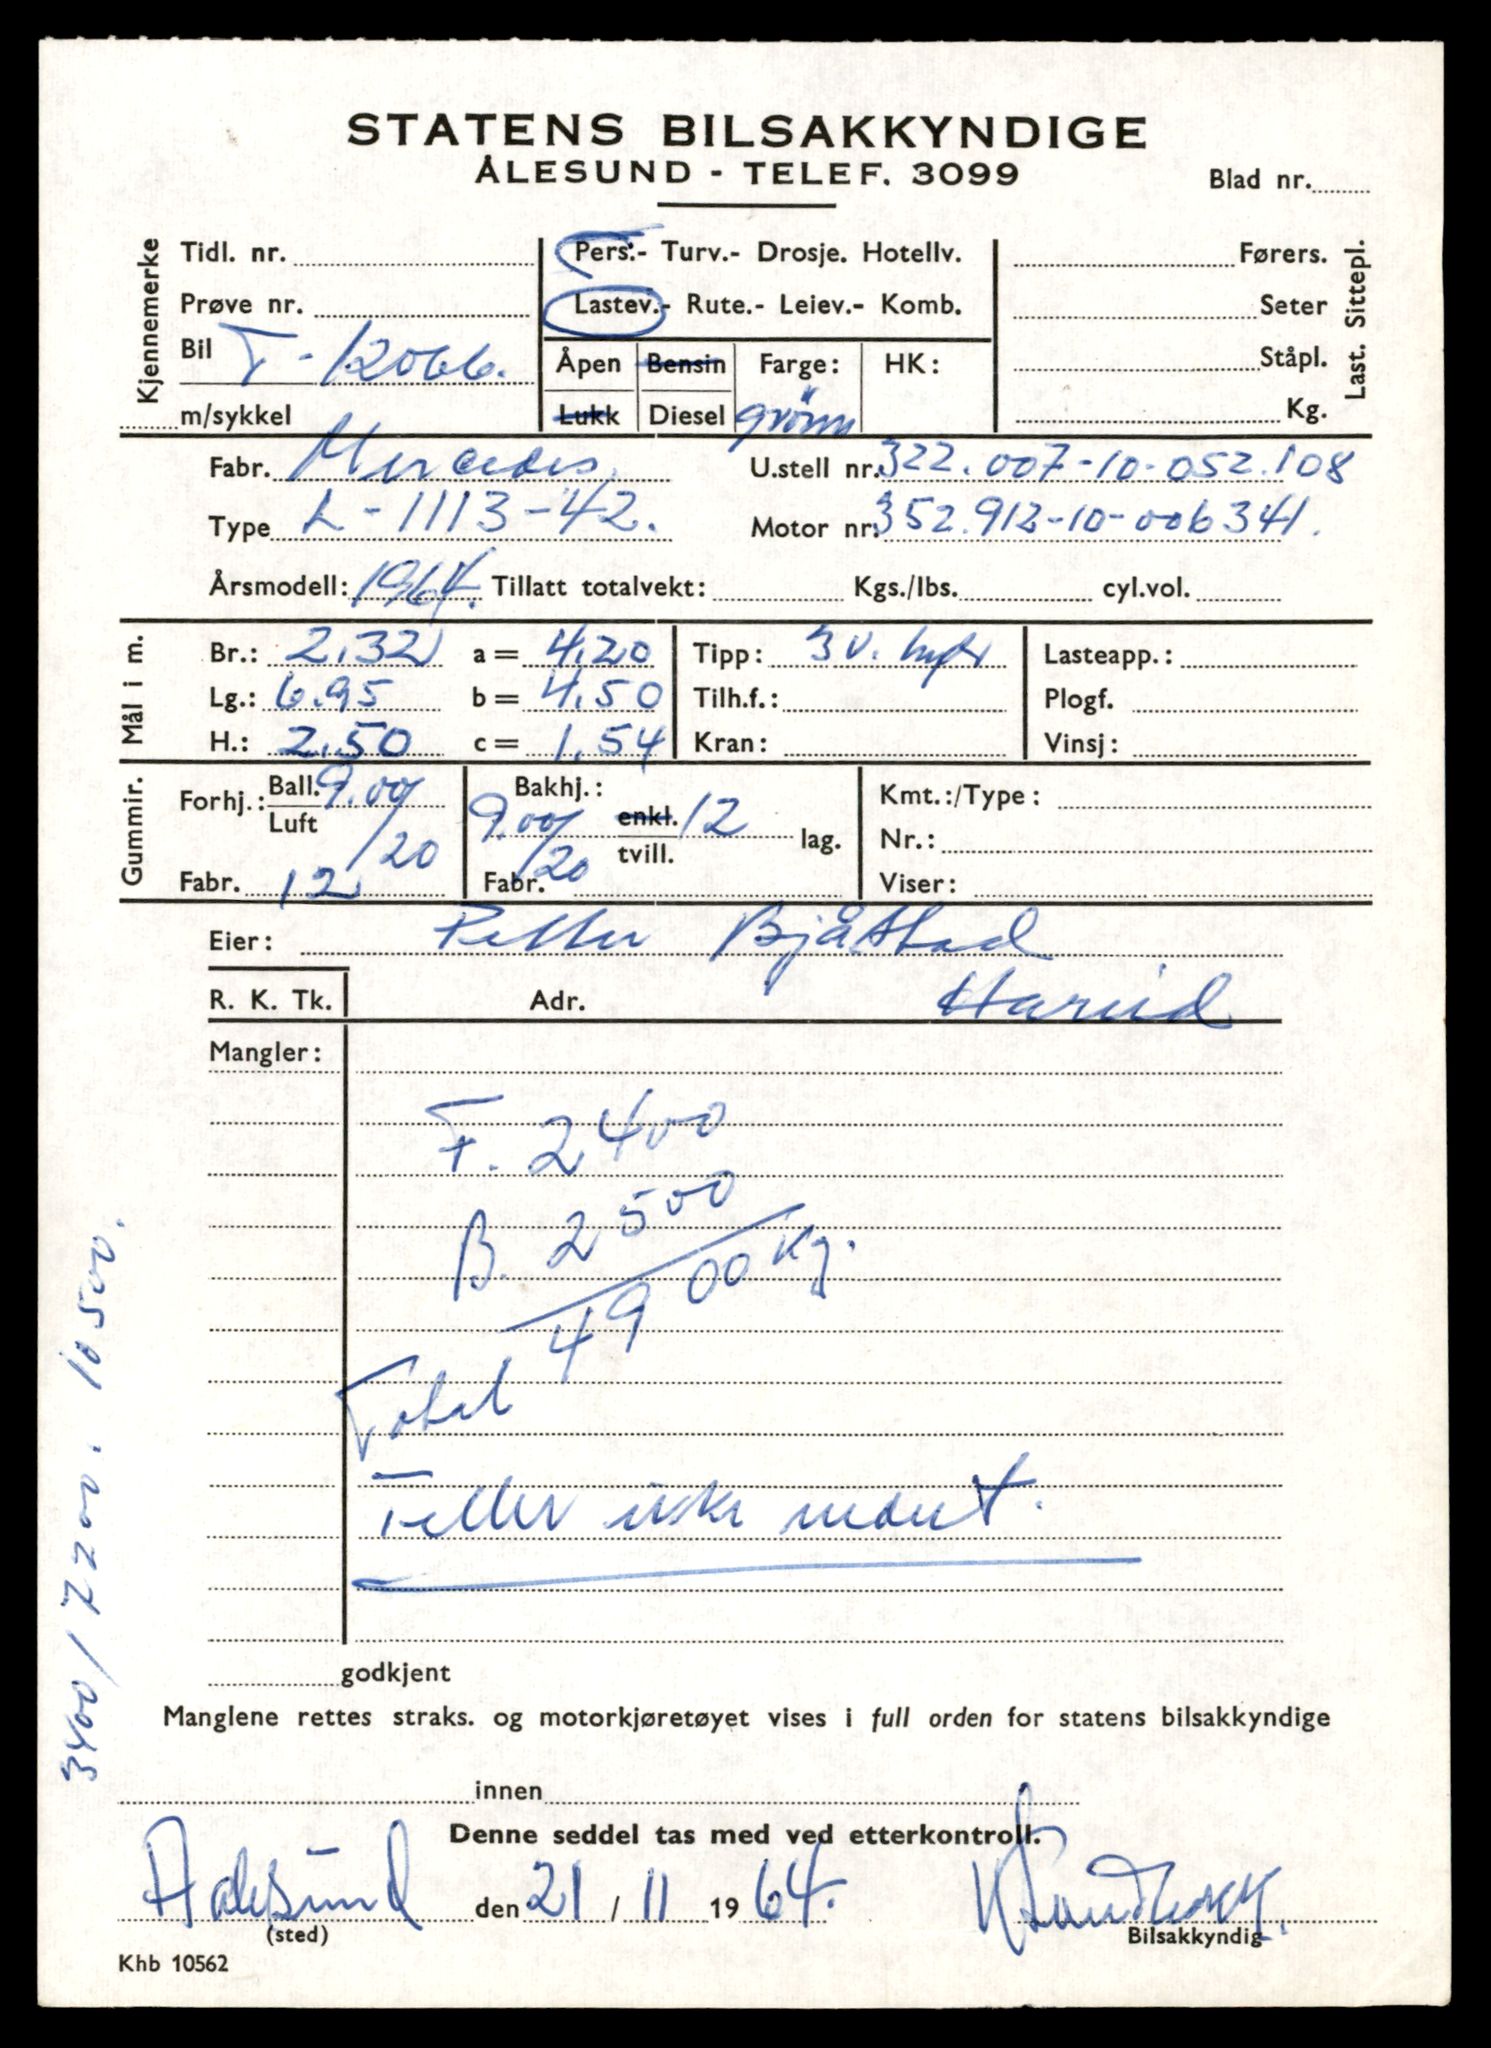 STATENS BILSAKKYNDIGE
ÅLESUND - TELEF. 3099
Blad nr.
Kjennemerke
Tidl. nr.
Prøve nr.
Bil T-12066.
m/sykkel
Pers.- Turv.- Drosje. Hotellv.
Lastev.- Rute.- Leiev.- Komb.
Åpen Bensin Farge: HK:
Lukk Diesel grönn
Førers.
Seter
Ståpl.
Kg.
Last. Sittepl.
Fabr. Mercedes. U.stell nr. 322.007-10-052.108
Type L-1113-42. Motor nr. 352.912-10-006341.
Årsmodell: 1964. Tillatt totalvekt: Kgs./lbs. cyl.vol.
Mål i m.
Br.: 2.32 a = 4.20 Tipp: 3 v. Lasteapp.:
Lg.: 6.95 b = 4.50 Tilh.f.: Plogf.
H.: 2.50 c = 1.54 Kran: Vinsj:
Gummir.
Forhj.: Ball. 9.00/20
Luft
Fabr. 12
Bakhj.:
9.00/20 enkl. 12 lag.
tvill.
Fabr.
Kmt.:/Type:
Nr.:
Viser:
Eier: Petter Bjåstad
R. K. Tk. Adr. Hareid
Mangler:
F. 2400
B. 2500
4900 Kg.
Total
Teller ikke mont.
3400/7200. 10500.
godkjent
Manglene rettes straks. og motorkjøretøyet vises i full orden for statens bilsakkyndige
innen
Denne seddel tas med ved etterkontroll.
Aalesund den 21 / 11 19 64.
(sted)
Bilsakkyndig
Khb 10562